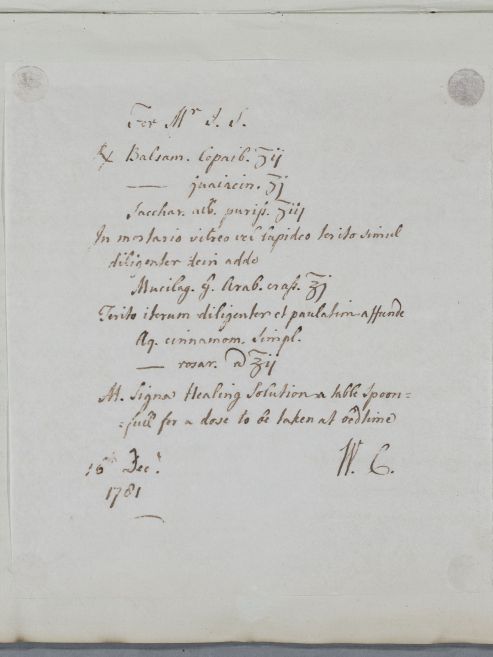 For Mr J. S.
℞ Balsam. Copaib. ʒij
—— guaiacin. ʒj
Sacchar. alb. puriss. ʒiij
In mortario vitreo vel lapideo terito simul
diligenter dein adde
Mucilag. g. Arab. crass. ℥j
Terito iterum diligenter et paulatim affunde
Aq. cinnamom. simpl.
—— rosar. a ℥ij
M. Signa Healing Solution a table spoon=
=full for a dose to be taken at bedtime
16th Decr.
1781
W. C.